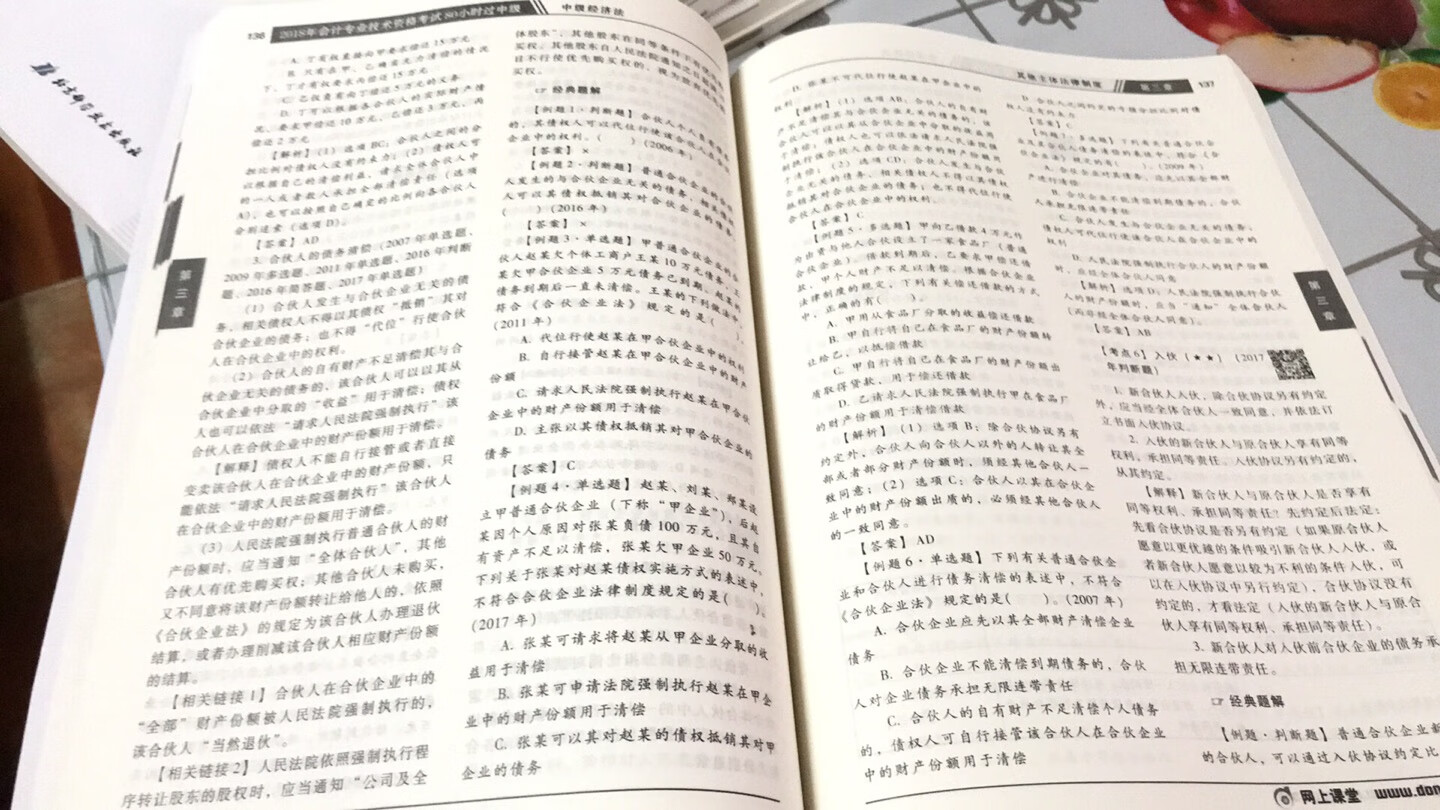 136 2018年会计专业技术资格考试80小时过中级 中级经济法
A. 丁有权直接向甲要求偿还15万元
B. 只有在甲、乙确实无力清偿的情况
下，丁才有权要求丙偿还15万元
C. 乙仅负有向丁偿还5万元的义务
D. 丁可以根据各合伙人的实际财产情
况，要求甲偿还10万元，乙偿还3万元，丙
偿还2万元
【解析】(1) 选项BC：合伙人之间的分
担比例对债权人没有约束力；(2) 债权人可
以根据自己的清偿利益，请求全体合伙人中
的一人或者数人承担全部清偿责任（选项
A)，也可以按照自己确定的比例向各合伙人
分别追索（选项D）。
【答案】AD
3. 合伙人的债务清偿（2007年单选题、
2009年多选题、2011年单选题、2016年判断
题、2016年简答题、2017年单选题）
(1) 合伙人发生与合伙企业无关的债
务，相关债权人不得以其债权“抵销”其对
合伙企业的债务；也不得“代位”行使合伙
人在合伙企业中的权利。
(2) 合伙人的自有财产不足清偿其与合
伙企业无关的债务的，该合伙人可以以其从
合伙企业中分取的“收益”用于清偿；债权
人也可以依法“请求人民法院强制执行”该
合伙人在合伙企业中的财产份额用于清偿。
【解释】债权人不能自行接管或者直接
变卖该合伙人在合伙企业中的财产份额，只
能依法“请求人民法院强制执行”该合伙人
在合伙企业中的财产份额用于清偿。
(3) 人民法院强制执行普通合伙人的财
产份额时，应当通知“全体合伙人”，其他
合伙人有优先购买权；其他合伙人未购买，
又不同意将该财产份额转让给他人的，依照
《合伙企业法》的规定为该合伙人办理退伙
结算，或者办理削减该合伙人相应财产份额
的结算。
【相关链接1】合伙人在合伙企业中的
“全部”财产份额被人民法院强制执行的，
该合伙人“当然退伙”。
【相关链接2】人民法院依照强制执行程
序转让股东的股权时，应当通知“公司及全
第三章
体股东”，其他股东在同等条件下有优先购
买权。其他股东自人民法院通知之日起满20
日不行使优先购买权的，视为放弃优先购
买权。
☞ 经典题解
【例题1·判断题】合伙人个人负有债务
的，其债权人可以代位行使该合伙人在合伙
企业中的权利。( ) (2006年)
【答案】×
【例题2·判断题】普通合伙企业的合伙
人发生的与合伙企业无关的债务，相关债权
人可以其债权抵销其对合伙企业的债务。
( ) (2016年)
【答案】×
【例题3·单选题】甲普通合伙企业的合
伙人赵某欠个体工商户王某10万元债务，王
某欠甲合伙企业5万元债务已到期，赵某的
债务到期后一直未清偿。王某的下列做法中，
符合《合伙企业法》规定的是( )。
(2011年)
A. 代位行使赵某在甲合伙企业中的权利
B. 自行接管赵某在甲合伙企业中的财产
份额
C. 请求人民法院强制执行赵某在甲合伙
企业中的财产份额用于清偿
D. 主张以其债权抵销其对甲合伙企业的
债务
【答案】C
【例题4·单选题】赵某、刘某、郑某设
立甲普通合伙企业（下称“甲企业”），后赵
某因个人原因对张某负债100万元，且其自
有资产不足以清偿，张某欠甲企业50万元。
下列关于张某对赵某债权实施方式的表述中，
不符合合伙企业法律制度规定的是( )。
(2017年)
A. 张某可请求将赵某从甲企业分取的收
益用于清偿
B. 张某可申请法院强制执行赵某在甲企
业中的财产份额用于清偿
C. 张某可以其对赵某的债权抵销其对甲
企业的债务
其他主体法律制度 第三章 137
D. 张某不可代位行使赵某在甲企业中的
权利
【解析】(1) 选项AB：合伙人的自有财
产不足清偿其与合伙企业无关的债务的，该
合伙人可以以其从合伙企业中分取的收益用
于清偿；债权人也可以依法请求人民法院强
制执行该合伙人在合伙企业中的财产份额用
于清偿；(2) 选项CD：合伙人发生与合伙
企业无关的债务，相关债权人不得以其债权
抵销其对合伙企业的债务；也不得代位行使
合伙人在合伙企业中的权利。
【答案】C
【例题5·多选题】甲向乙借款4万元作
为出资与他人合伙设立了一家食品厂（普通
合伙企业）。借款到期后，乙要求甲偿还借
款，甲个人财产不足以清偿。根据合伙企业
法律制度的规定，下列有关偿还借款的方式
中，正确的有( )。
A. 甲用从食品厂分取的收益偿还借款
B. 甲自行将自己在食品厂的财产份额转
让给乙，以抵偿借款
C. 甲自行将自己在食品厂的财产份额出
质取得贷款，用于偿还借款
D. 乙请求人民法院强制执行甲在食品厂
的财产份额用于清偿借款
【解析】(1) 选项B：除合伙协议另有
约定外，合伙人向合伙人以外的人转让其全
部或者部分财产份额时，须经其他合伙人一
致同意；(2) 选项C：合伙人以其在合伙企
业中的财产份额出质的，必须经其他合伙人
的一致同意。
【答案】AD
【例题6·单选题】下列有关普通合伙企
业和合伙人进行债务清偿的表述中，不符合
《合伙企业法》规定的是( )。(2007年)
A. 合伙企业应先以其全部财产清偿企业
债务
B. 合伙企业不能清偿到期债务的，合伙
人对企业债务承担无限连带责任
C. 合伙人的自有财产不足清偿个人债务
的，债权人可自行接管该合伙人在合伙企业
中的财产份额用于清偿
D. 合伙人之间约定的亏损分担比例对债
权人没有约束力
【答案】C
【例题7·多选题】下列有关普通合伙企
业及其合伙人债务清偿的表述中，符合《合
伙企业法》规定的有( )。(2009年)
A. 合伙企业对其债务，应先以其全部财
产进行清偿
B. 合伙企业不能清偿到期债务的，合伙
人承担无限连带责任
C. 合伙人发生与合伙企业无关的债务，
债权人可代位行使该合伙人在合伙企业中的
权利
D. 人民法院强制执行合伙人的财产份额
时，应经全体合伙人同意
【解析】选项D：人民法院强制执行合伙
人的财产份额时，应当“通知”全体合伙人
（而非经全体合伙人同意）。
【答案】AB
【考点6】入伙（★★）（2017
年判断题）
1. 新合伙人入伙，除合伙协议另有约定
外，应当经全体合伙人一致同意，并依法订
立书面入伙协议。
2. 入伙的新合伙人与原合伙人享有同等
权利，承担同等责任。入伙协议另有约定的，
从其约定。
【解释】新合伙人与原合伙人是否享有
同等权利、承担同等责任？先约定后法定：
先看合伙协议是否另有约定（如果原合伙人
愿意以更优越的条件吸引新合伙人入伙，或
者新合伙人愿意以较为不利的条件入伙，可
以在入伙协议中另行约定），合伙协议没有
约定的，才看法定（入伙的新合伙人与原合
伙人享有同等权利、承担同等责任）。
3. 新合伙人对入伙前合伙企业的债务承
担无限连带责任。
☞ 经典题解
【例题·判断题】普通合伙企业新
的合伙人，可以通过入伙协议约定比
第三章
网上课堂 www.don